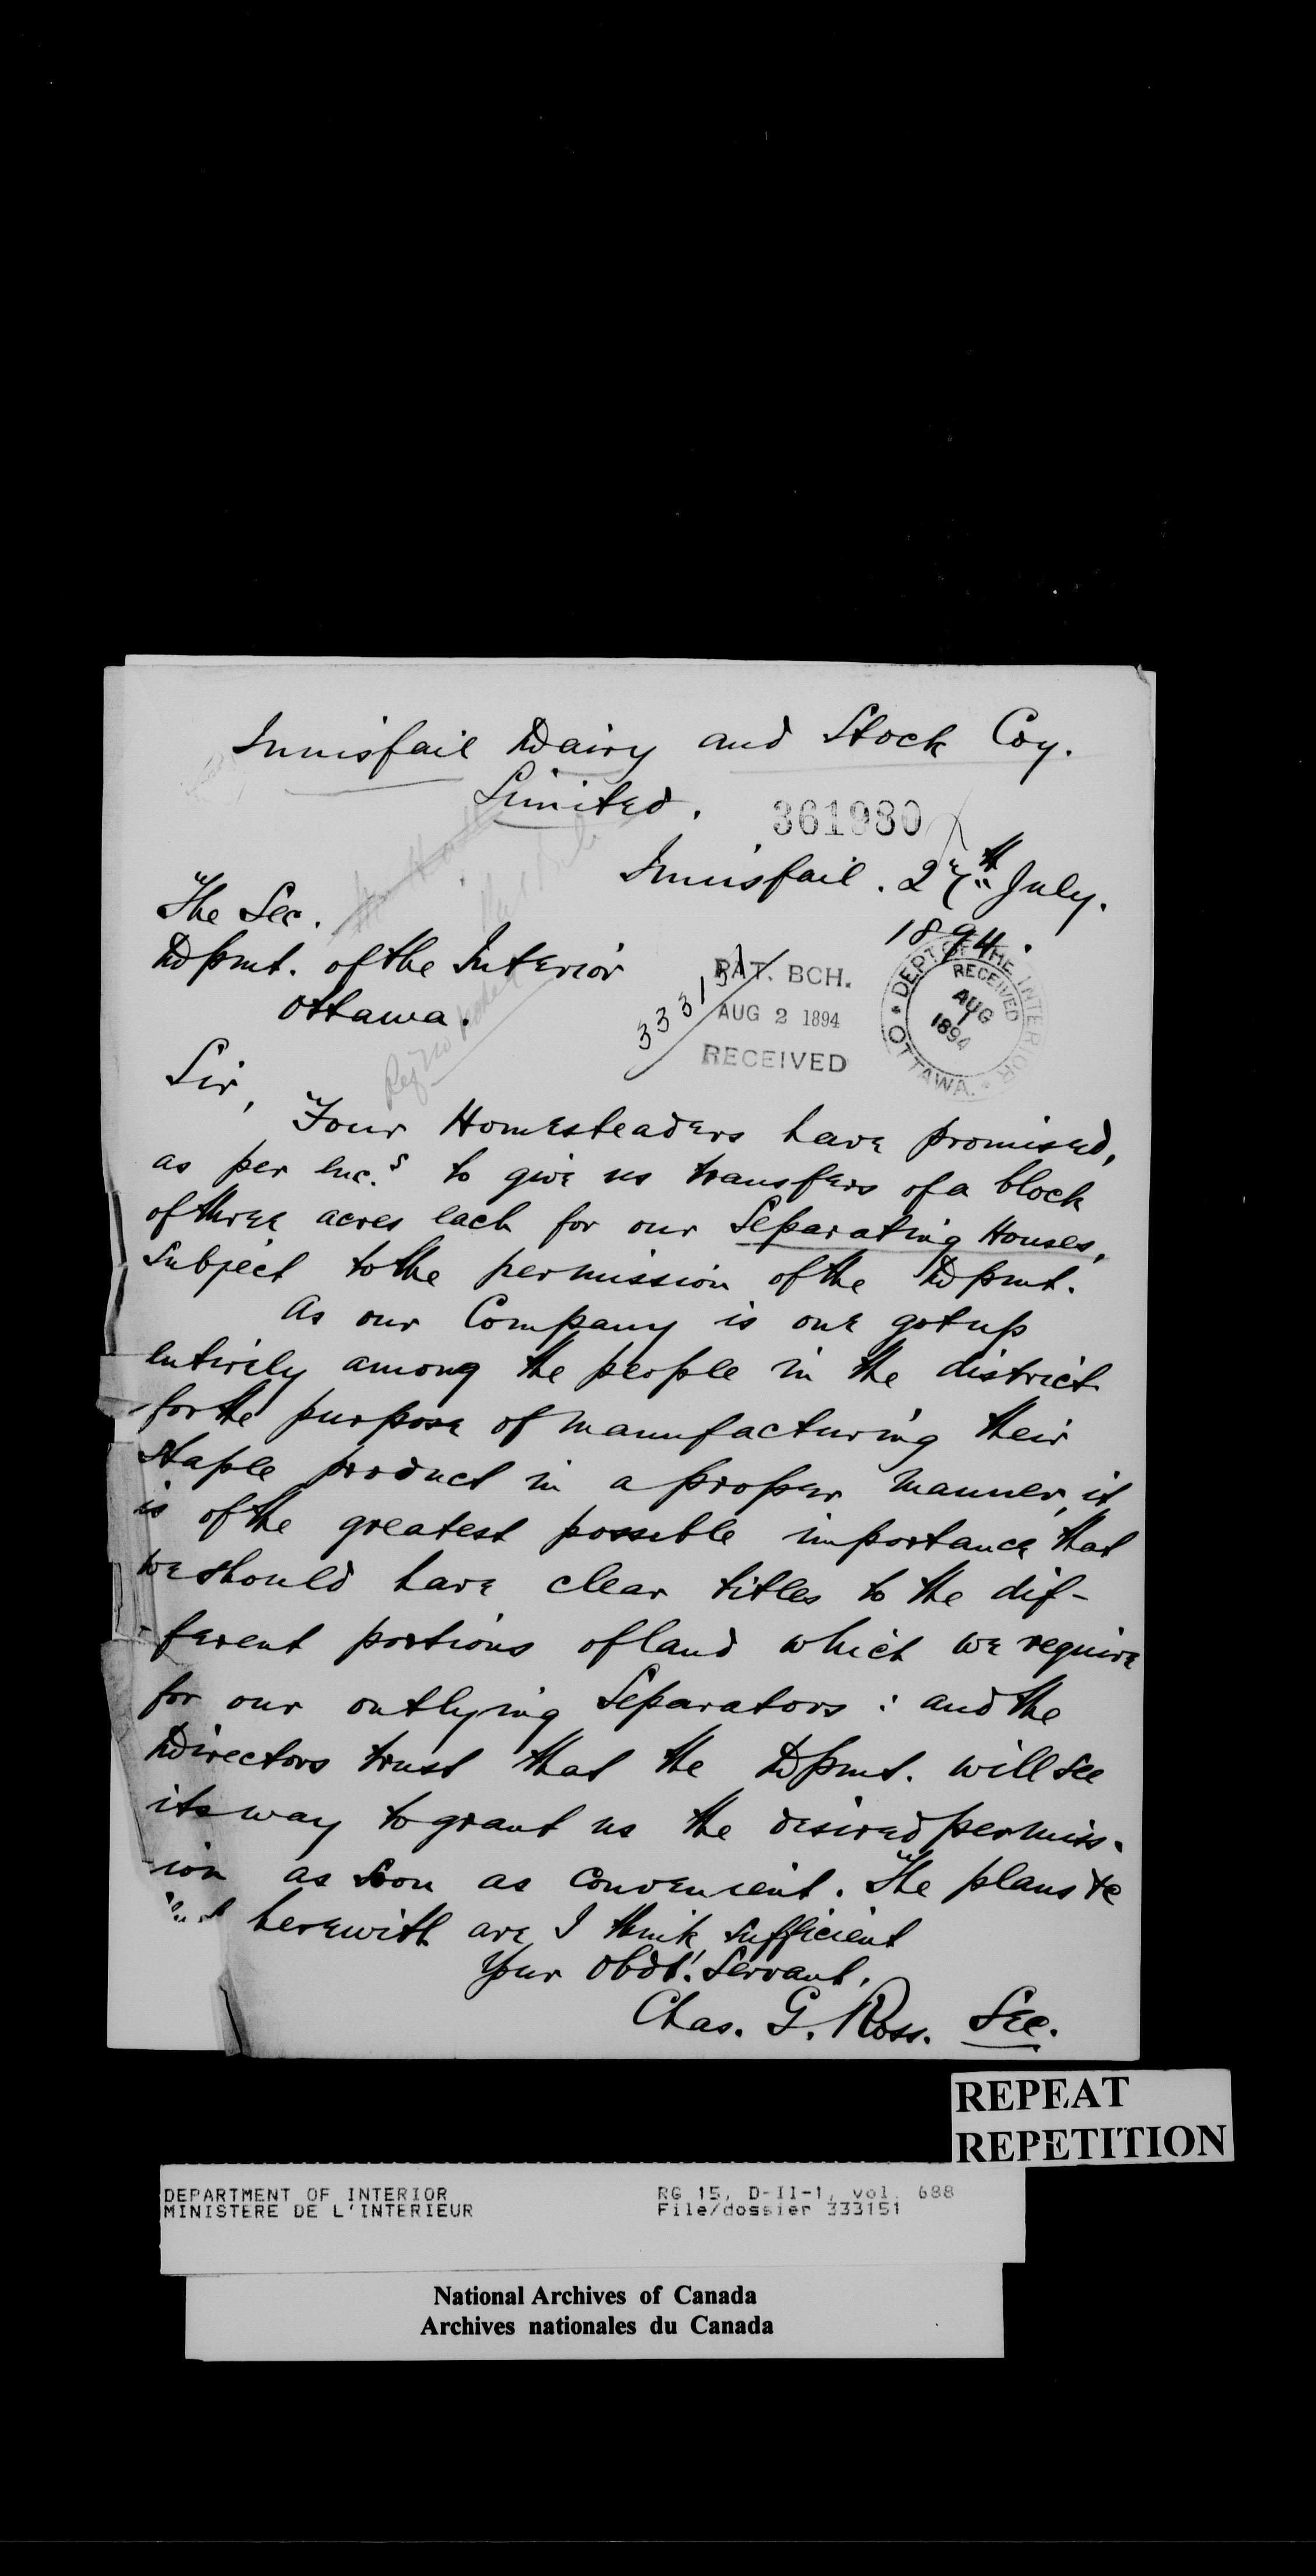 Innisfail Dairy and Stock Coy.
Limited.
361980
Innisfail. 27th July.
1894.
The Sec.
Dpmt. of the Interior
Ottawa.
333151
PAT. BCH.
AUG 2 1894
RECEIVED
DEPT. OF THE INTERIOR
RECEIVED
AUG
1
1894
* OTTAWA. *
Sir,
Four Homesteaders have promised,
as per enc.s to give us transfers of a block
of three acres each for our Separating Houses,
subject to the permission of the Dpmt.
As our Company is one got up
entirely among the people in the district
for the purpose of manufacturing their
staple product in a proper manner, it
is of the greatest possible importance that
we should have clear titles to the dif-
-ferent portions of land which we require
for our outlying Separators : and the
Directors trust that the Dpmt. will see
its way to grant us the desired permiss-
-ion as soon as convenient. The plans &c
herewith are I think sufficient
Your obdt. Servant,
Chas. G. Ross. Sec.
REPEAT
REPETITION
DEPARTMENT OF INTERIOR
MINISTERE DE L'INTERIEUR
RG 15, D-II-1, vol. 688
File/dossier 333151
National Archives of Canada
Archives nationales du Canada